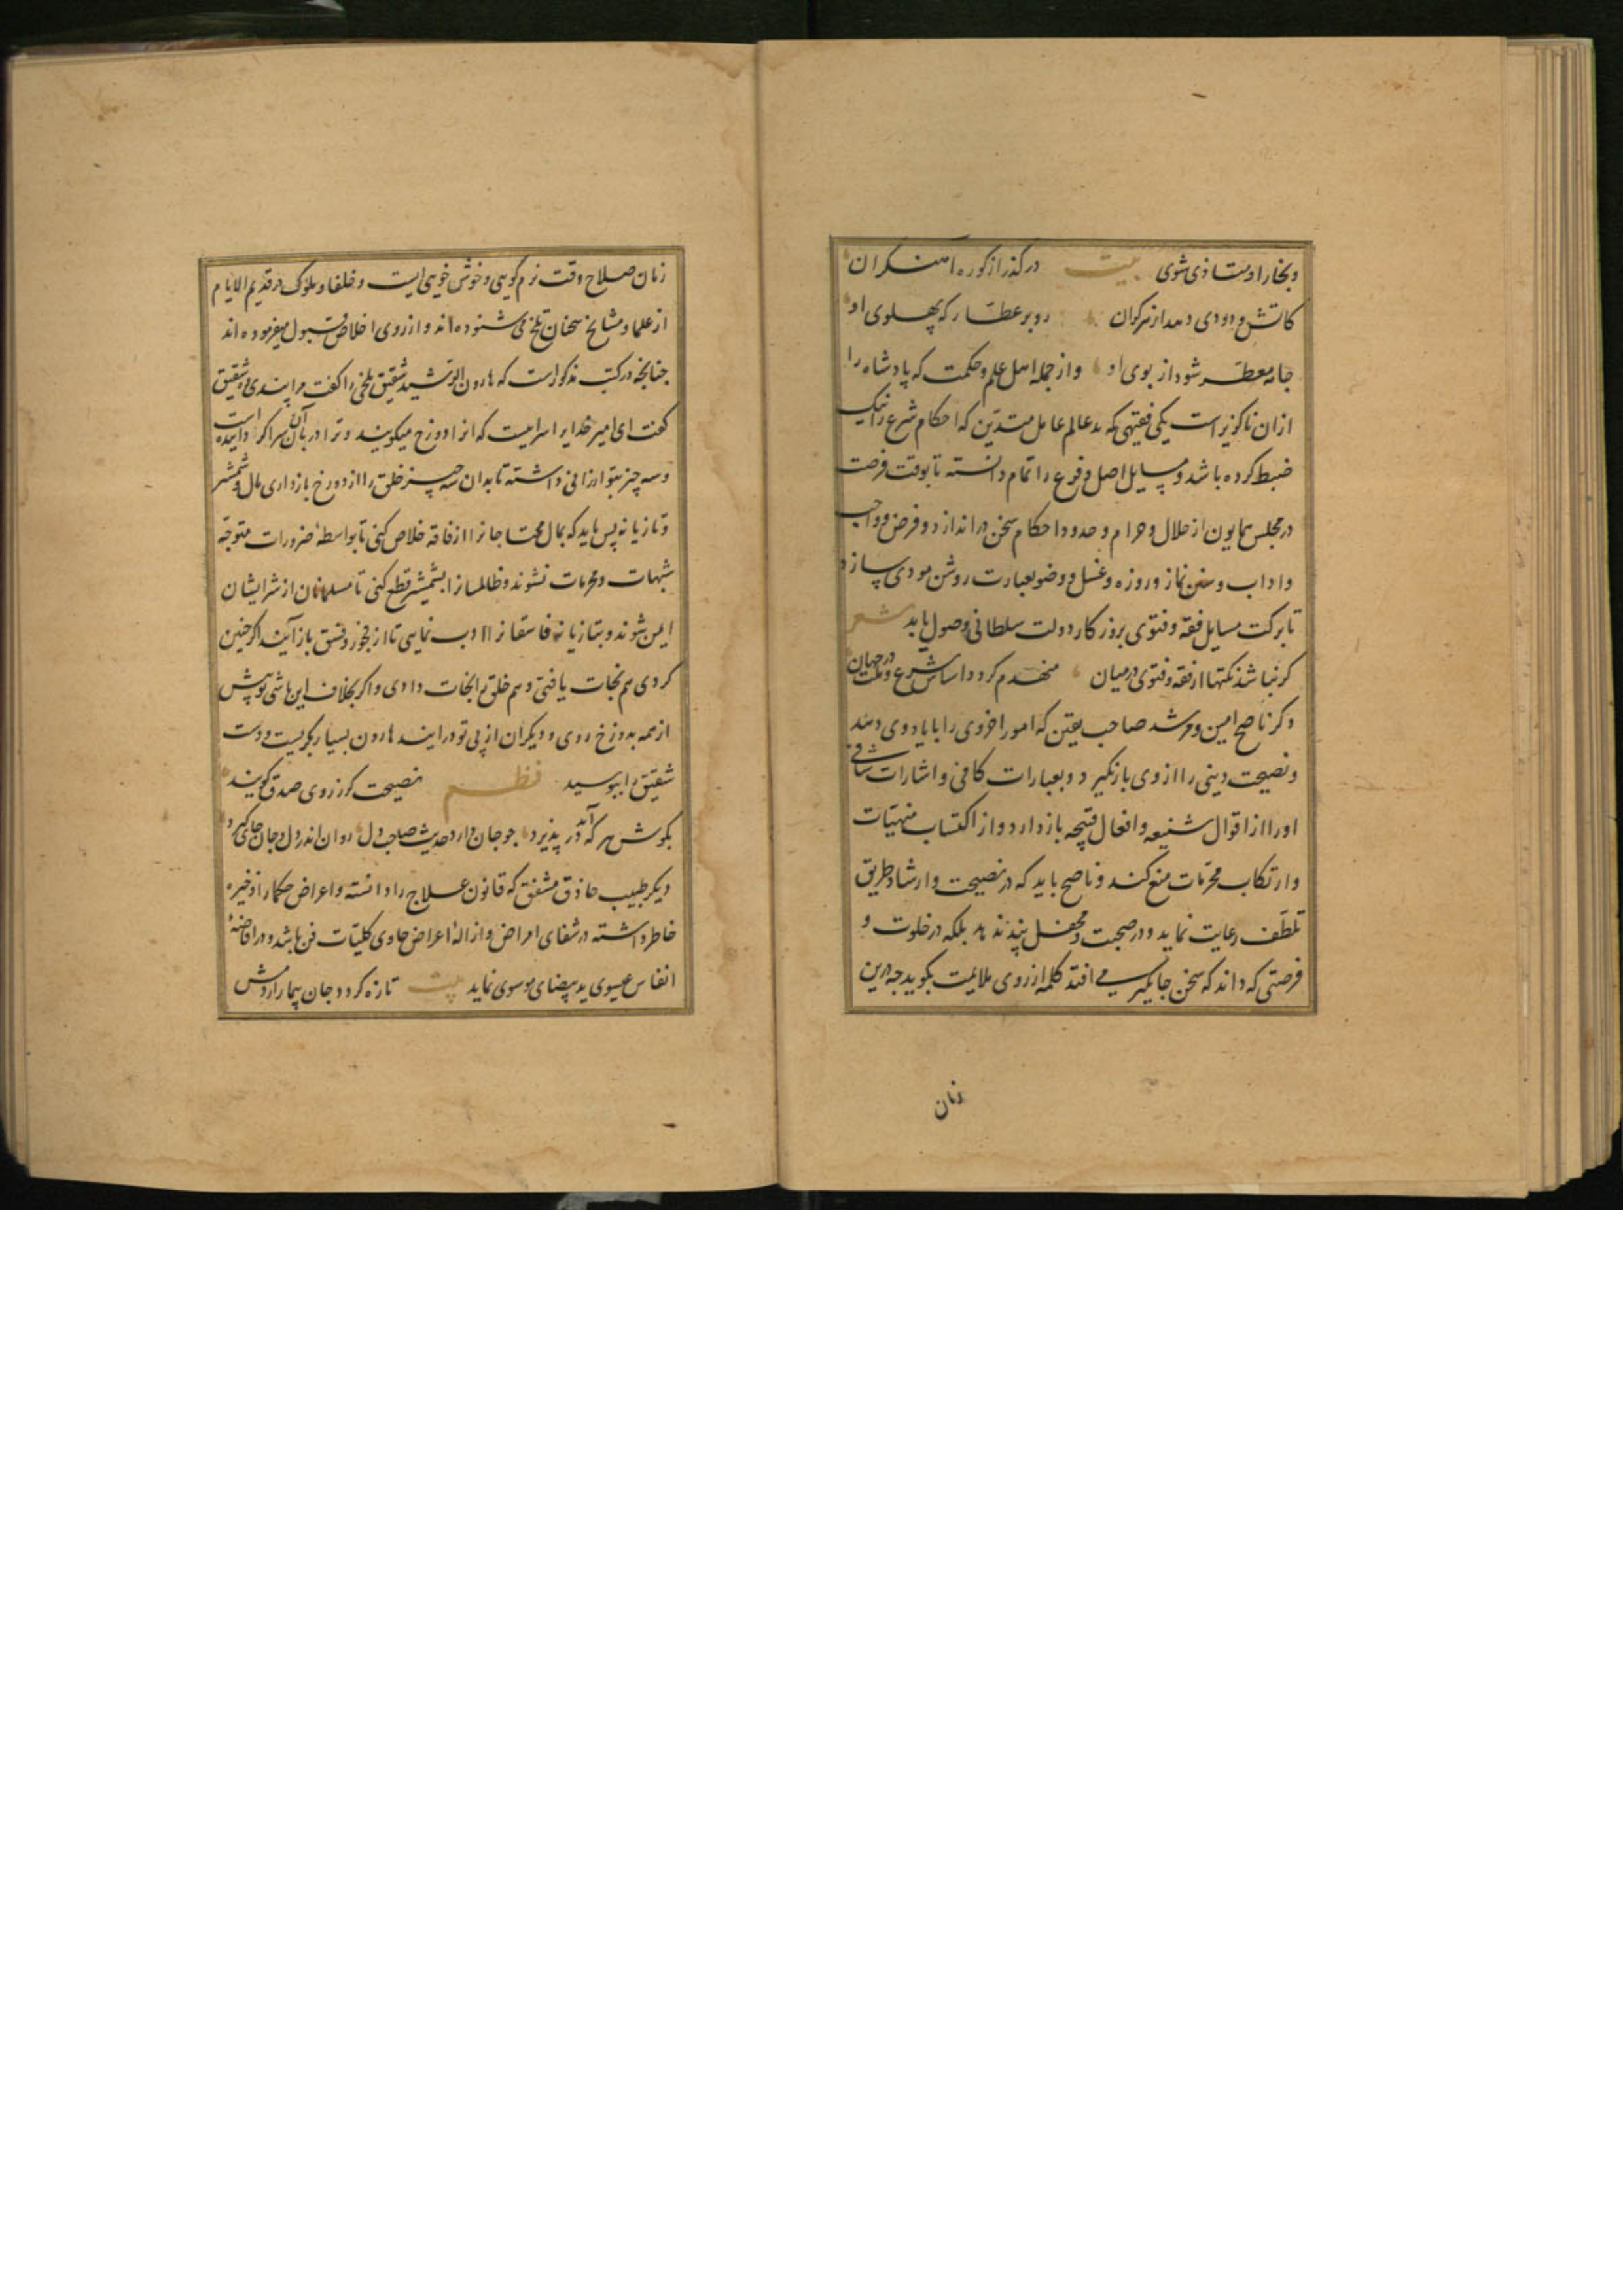 و بخار او متاذی شوی بیت در گذر از کوره آهنگران
کاتش و دودی دهد از هر کران رو بر عطار که پهلوی او
جامه معطر شود از بوی او و از جمله اهل علم و حکمت که پادشاه را
ازان ناگزیر است یکی فقیهی که بد عالم عامل متدین که احکام شرع را نیک
ضبط کرده باشد و مسایل اصل و فرع را تمام دانسته تا بوقت فرصت
در مجلس همایون از حلال و حرام و حدود احکام سخن در اندازد و فرض و واجب
و اداب و سنن نماز و روزه و غسل و وضو بعبارت روشن مودی سازد
تا برکت مسایل فقه و فتوی بروزکار دولت سلطانی وصول یابد شعر
کر نباشد نکتها از فقه و فتوی در میان منهدم کردد اساس شرع و ملت در جهان
دکر ناصح امین و مرشد صاحب یقین که امور اخروی را با یاد وی دهد
و نصیحت دینی را از وی بازنگیرد و بعبارات کافی و اشارات شافی
او را از اقوال شنیعه و افعال قبیحه باز دارد و از اکتساب منهیات
و ارتکاب محرمات منع کند و ناصح باید که در نصیحت و ارشاد طریق
تلطف رعایت نماید و در صحبت و محفل پند ندهد بلکه در خلوت و
فرصتی که داند که سخن جایگیر می افتد کلمه از روی ملایمت بکوید جه درین
زمان
زمان صلاح وقت نرم کویی و خوش خویی است و خلفا و ملوک در قدیم الایام
از علما و مشایخ سخنان تلخ می شنوده اند و از روی اخلاص قبول میفرموده اند
جنانجه در کتب مذکور است که هارون الرشید شقیق بلخی را کفت مرا پندی ده شقیق
کفت ای امیر خدایرا سراییست که انرا دوزخ میکویند و ترا دربان آن سرا کردانیده است
و سه چیز بتو ارزانی داشته تا بدان سه چیز خلق را از دوزخ بازداری مال و شمشیر
و تازیانه پس باید که بمال محتاجانرا از فاقه خلاص کنی تا بواسطهٔ ضرورات متوجه
شبهات و محرمات نشوند و ظالمانرا بشمشیر قطع کنی تا مسلمانان از شر ایشان
ایمن شوند و بتازیانه فاسقانرا ادب نمایی تا از فجور و فسق باز آیند اکر جنین
کردی هم نجات یافتی و هم خلق را نجات دادی و اکر بخلاف این باشی تو پیش
از همه بدوزخ روی و دیکران از پی تو درایند هارون بسیار بکریست و دست
شقیق را ببوسید نظم نصیحت کز روی صدق کویند
بکوش هر که آید در پذیرد جو جان دارد حدیث صاحب دل روان اندر دل و جان جای کیرد
دیکر طبیب حاذق مشفق که قانون علاج را دانسته و اعراض حکما را ذخیره
خاطر داشته در شفای امراض و ازالهٔ اعراض حاوی کلیات فن باشد و در افاضهٔ
انفاس عیسوی ید بیضای موسوی نماید بیت تازه کردد جان بیمار از دمش